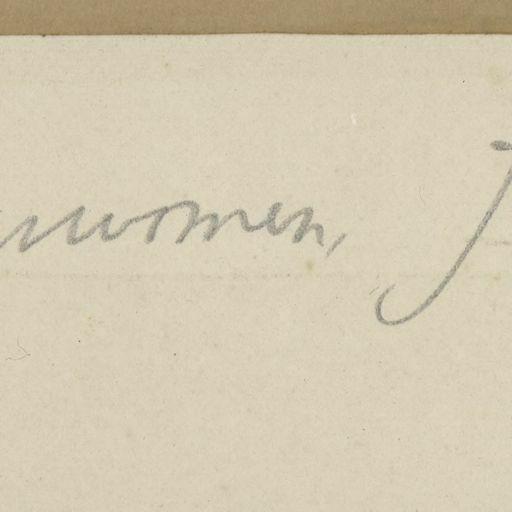 women, J